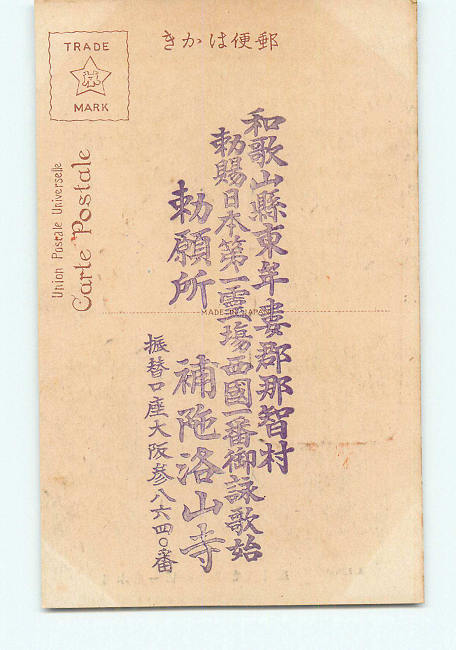 TRADE
MARK
きかは便郵
Union Postale Universelle
Carte Postale
MADE IN JAPAN
和歌山縣東牟婁郡那智村
勅賜日本第一霊場西國一番御詠歌始
勅願所 補陁洛山寺
振替口座大阪参八六四〇番